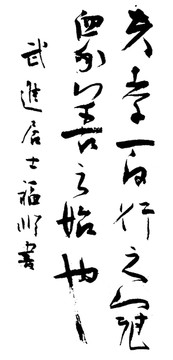 夫孝百行之冠
眾善之始也
武進居士福書